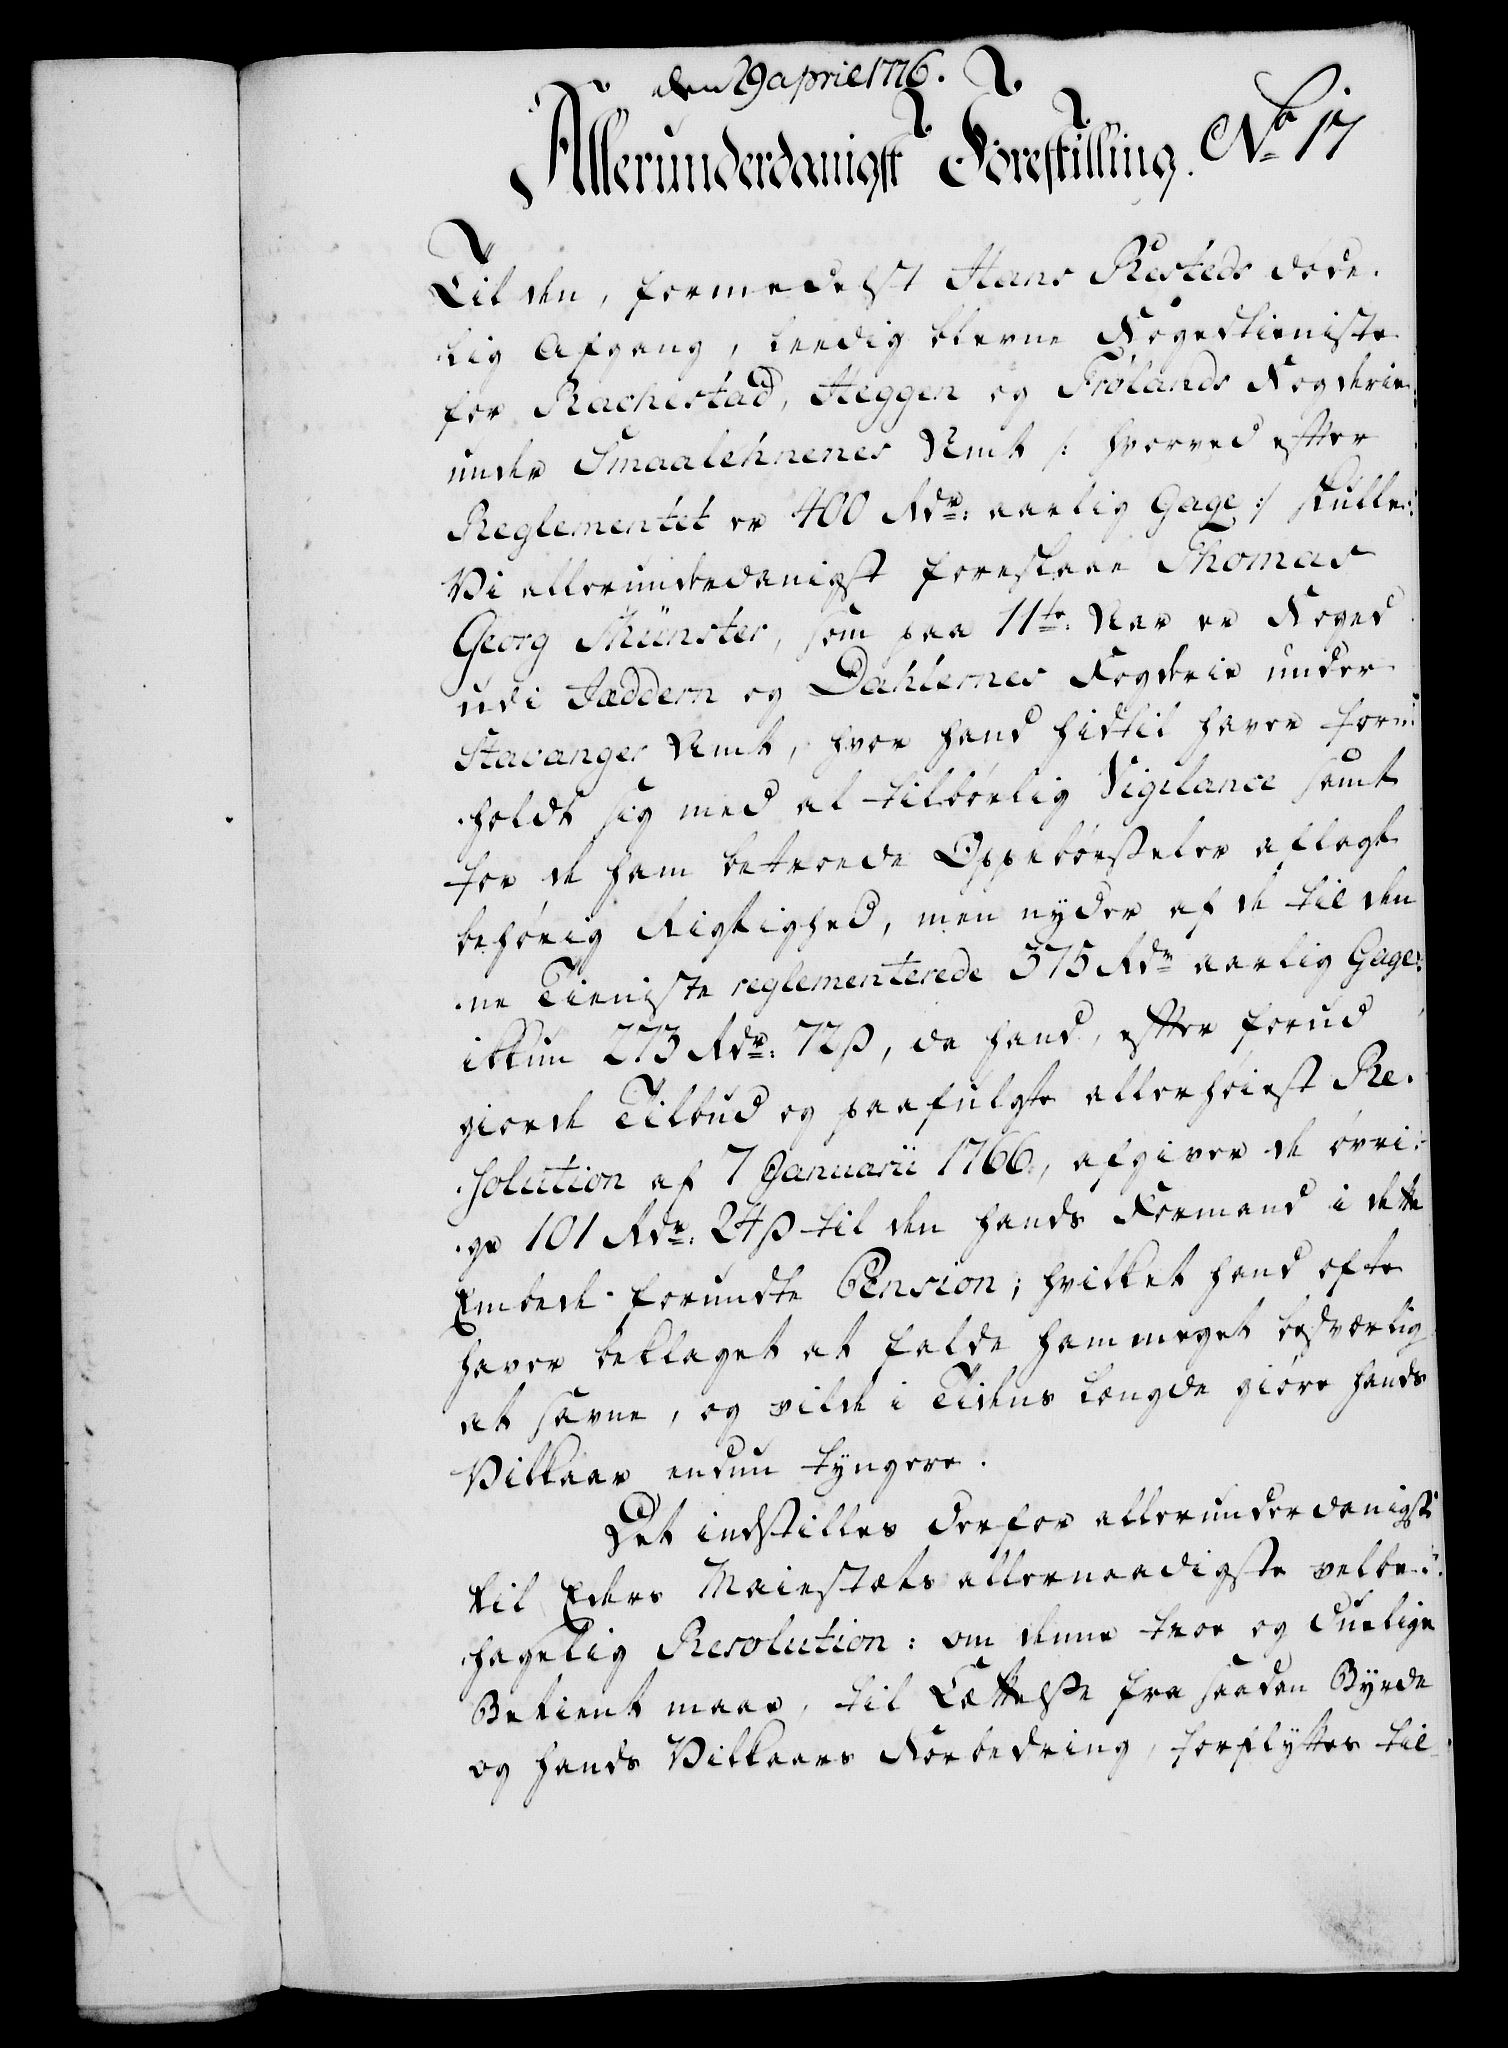 den 29 april 1776.
Allerunderdanigst Forestilling. No 17
Til den, formedelst Hans Resteds döde.
lig Afgang, leedig blevne Fogedtieniste
for Rachestad, Heggen og Frölands Fogderie
under Smaalehnenes Amt /: hvorved efter
Reglementet er 400 Rdr: aarlig Gage :/ skulle
Vi allerunderdanigst foreslaae Thomas
Georg Münster, som paa 11te Aar er Foged
udi Jæddern og Dahlernes Fogderie under
Stavanger Amt, hvor hand hidtil haver for-
holdt sig med al tilbörlig Vigilance samt
for de ham betroede Oppebörseler aflagt
behörig Rigtighed, men nyder af de til den
.ne Tieniste reglementerede 375 Rdr aarlig Gage
ikkun 273 Rdr: 72 ß, da hand, efter forud
giorde Tilbud og paafulgte allerhöiest Re.
.solution af 7 Januarii 1766, afgiver de övri-
.ge 101 Rdr: 24 ß til den hands Formand i dette
Embede forundte Pension; hvilket hand ofte
haver beklaget at falde ham meget besværlig
at savne, og vilde i Tidens Længde giöre hands
Vilkaar endnu tyngere.
Det indstilles derfor allerunderdanigst
til Eders Maiestæts allernaadigste velbe-
hagelig Resolution: om denne troe og duelige
Betient maae, til Lættelse fra saadan Byrde
og hands Vilkaars Forbedring, forflyttes til